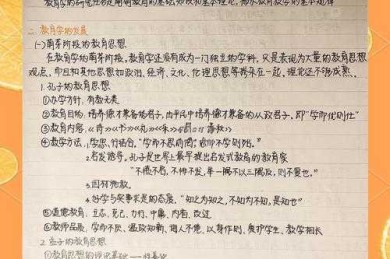 教育学的研究任务是阐明教育的基础知识和基本理论，揭示教育教学的基本规律
二、教育学的发展
(一)萌芽阶段的教育思想
在教育学的萌芽阶段，教育学还没有成为一门独立的学科，只是表现为大量的教育思想
观点，而且和其他思想如政治、经济、文化、伦理思想等混杂在一起，理论还不够成熟。
1. 孔子的教育思想
①办学方针：有教无类
②教育目的：培养德才兼备的君子，由平民中培养德才兼备的从政君子，即"学而优则仕"
③教育内容：《诗》《书》《礼》《乐》《易》《春秋》
④教学方法：1.学思行结合，"学而不思则罔，思而不学则殆。"
2.启发诱导，孔子是世界上最早提出启发式教育的教育家
"不愤不启，不悱不发，举一隅不以三隅反，则不复也。"
3.因材施教。
4.好学与实事求是的态度，"知之为知之，不知为不知，是知也"
⑤道德教育：立志、克己、力行、中庸、内省、改过
⑥教师品质：学而不厌、温故知新、诲人不倦、以身作则、爱护学生、教学相长
2. 孟子的教育思想